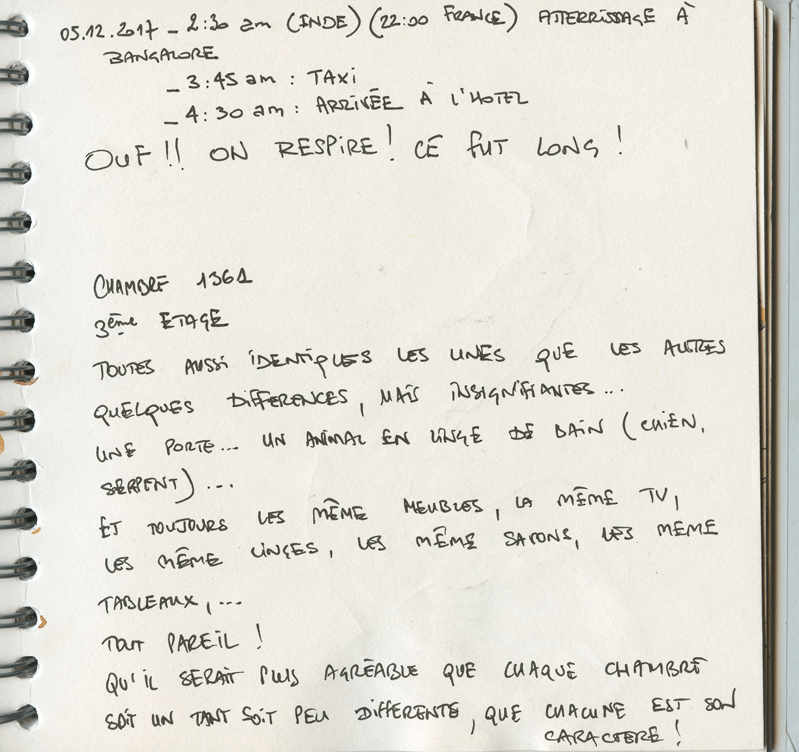 05.12.2017 - 2:30 am (INDE) (22:00 FRANCE) ATTERRISSAGE À
BANGALORE
- 3:45 am : TAXI
- 4:30 am : ARRIVÉE À L'HOTEL
OUF !! ON RESPIRE ! CE FUT LONG !
CHAMBRE 1361
3ème ETAGE
TOUTES AUSSI IDENTIQUES LES UNES QUE LES AUTRES
QUELQUES DIFFERENCES, MAIS INSIGNIFIANTES...
UNE PORTE... UN ANIMAL EN LINGE DE BAIN (CHIEN,
SERPENT)...
ET TOUJOURS LES MÊME MEUBLES, LA MÊME TV,
LES MÊME LINGES, LES MÊME SAVONS, LES MEME
TABLEAUX,...
TOUT PAREIL !
QU'IL SERAIT PLUS AGRÉABLE QUE CHAQUE CHAMBRE
SOIT UN TANT SOIT PEU DIFFERENTE, QUE CHACUNE EST SON
CARACTERE !